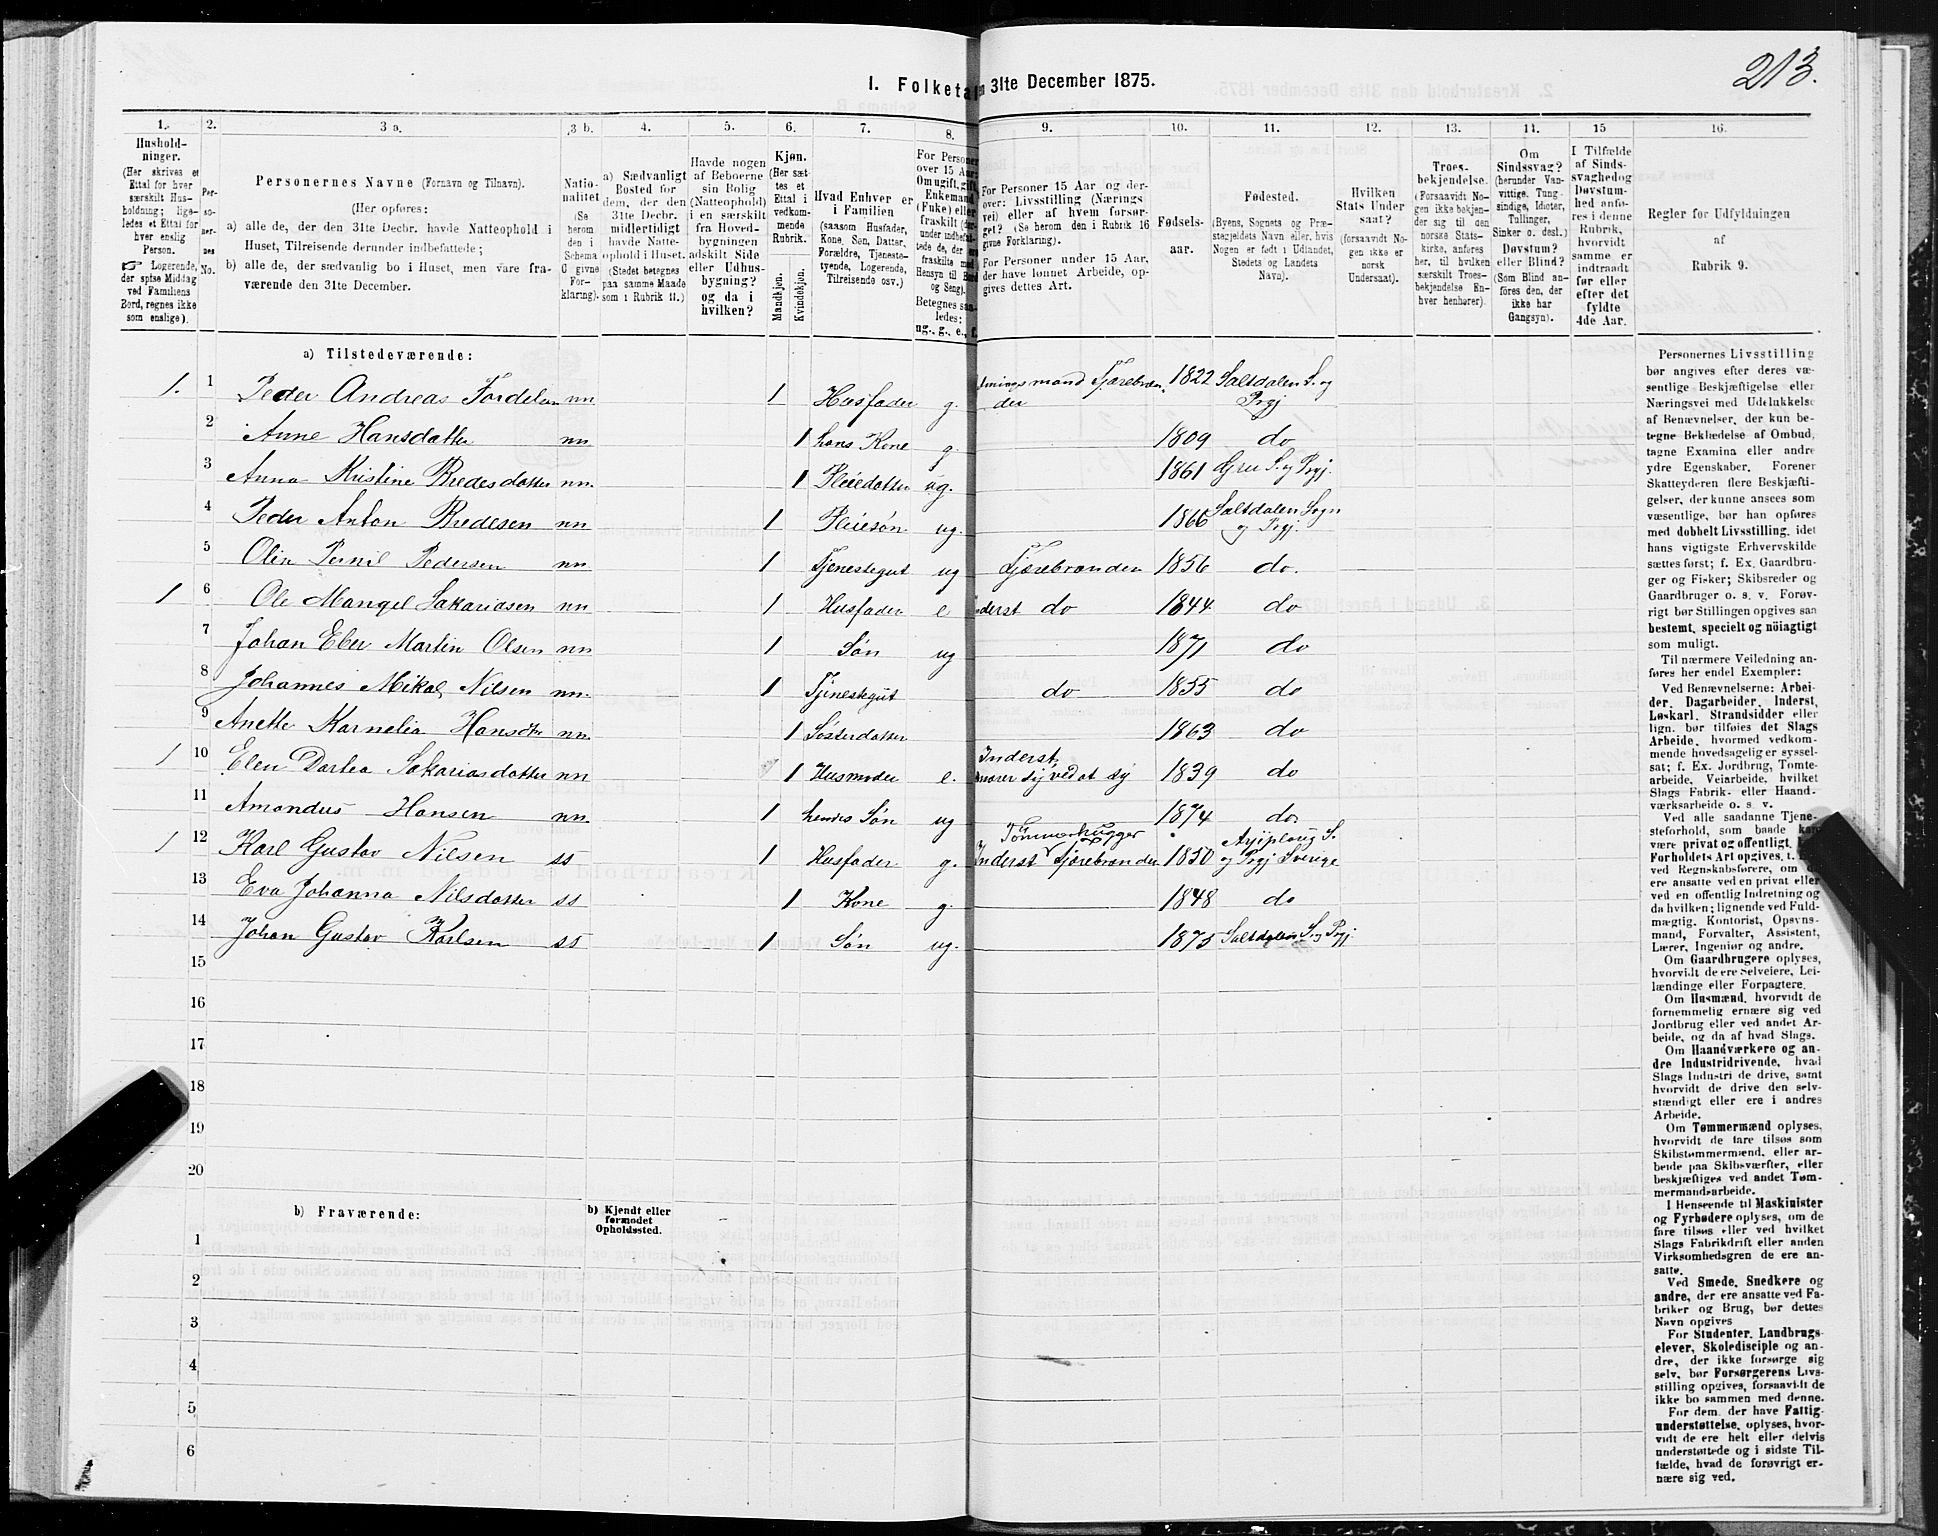 213.
I. Folketal
n 31te December 1875.
1. 2. 3 a. 3 b. 4. 5. 6. 7. 8. 9. 10. 11. 12. 13. 14. 15 16.
Hushold-
ninger.
(Her skrives et
Ettal for hver
særskilt Hus-
holdning; lige-
ledes et Ettal for
hver enslig
Person.
☞ Logerende,
der spise Middag
ved Familiens
Bord, regnes ikke
som enslige).
Per-
so-
ner-
nes
No.
Personernes Navne (Fornavn og Tilnavn).
(Her opføres:
a) alle de, der den 31te Decbr. havde Natteophold i
Huset, Tilreisende derunder indbefattede;
b) alle de, der sædvanlig bo i Huset, men vare fra-
værende den 31te December.
Natio-
nalitet
(Se
herom
den i
Schema
C givne
For-
klaring).
a) Sædvanligt
Bosted for
dem, der den
31te Decbr.
midlertidigt
havde Natte-
ophold i Huset.
(Stedet betegnes
paa samme Maade
som i Rubrik 11.)
Havde nogen
af Beboerne
sin Bolig
(Natteophold)
i en særskilt
fra Hoved-
bygningen
adskilt Side
eller Udhus-
bygning?
og da i
hvilken?
Kjøn.
(Her sæt-
tes et
Ettal i
vedkom-
mende
Rubrik.
Mandkjøn.
Kvindekjøn.
Hvad Enhver er
i Familien
(saasom Husfader,
Kone, Søn, Datter,
Forældre, Tjeneste-
tyende, Logerende,
Tilreisende osv.)
For Personer
over 15 Aar:
Om ugift, gift,
Enkemand
(Enke) eller
fraskilt
Betegnes saa-
ledes:
ug., g., e., f.
For Personer 15 Aar og der-
over: Livsstilling (Nærings
vei) eller af hvem forsør-
get? (Se herom den i Rubrik 16
givne Forklaring).
For Personer under 15 Aar,
der have lønnet Arbeide, op-
gives dettes Art.
Fødsels-
aar.
Fødested.
(Byens, Sognets og Præ-
stegjeldets Navn eller, hvis
Nogen er født i Udlandet,
Stedets og Landets
Navn).
Hvilken
Stats Under
saat?
(forsaavidt No-
gen ikke er
norsk
Undersaat).
Troes-
bekjendelse.
(Forsaavidt No-
gen ikke bekjen-
der sig til den
norske Stats-
kirke, anføres
her, til hvilken
særskilt Troes-
bekjendelse En-
hver henhører).
Om
Sindssvag?
(herunder Van-
vittige, Tung-
sindige, Idioter,
Tullinger,
Sinker o. desl.)
Døvstum?
eller Blind?
(Som Blind an-
føres den, der
ikke har
Gangsyn).
I Tilfælde
af Sinds-
svaghed og
Døvstum-
hed anfø-
res i denne
Rubrik,
hvorvidt
samme er
indtraadt
før eller
efter det
fyldte
4de Aar.
Regler for Udfyldningen
af
Rubrik 9.
a) Tilstedeværende:
1. 1 Peder Andreas nn 1 Husfader g. mand Tjærebræn der 1822 Saltdalen S. og Prgj
2 Anne Hansdatter nn 1 hans Kone g. 1809 do
3 Anna Kristine Bredesdatter nn. 1 Pleiedatter ug. 1861 Grue S. og Prgj.
4 Peder Anton Bredesen nn 1 Pleiesøn ug. 1866 Saltdalen Sogn og Prgj.
5 Olin Pernil Pedersen nn 1 Tjenestegut ug Tjærebrænden 1856 do.
1 6 Ole Mangel Sakariasen nn 1 Husfader e Inderst do 1844 do
7 Johan Eber Martin Olsen nn 1 Søn ug 1871 do
8 Johannes Mikal Nilsen nn. 1 Tjenestegut do 1855 do
9 Anette Karnelia Hansdtr nn. 1 Søsterdatter 1863 do
1 10 Elen Dortea Sakariasdatter nn 1 Husmoder e. Inderst, nærer sig ved at sy 1839 do
11 Amandus Hansen nn. 1 hendes Søn ug 1874 do
1 12 Karl Gustav Nilsen ss 1 Husfader g. Inderst Tømmerhugger Tjærebrænder 1850 Arjeploug S. og Prgj Sverige
13 Eva Johanna Nilsdatter ss 1 Kone g. 1848 do
14 Johan Gustav Karlsen ss 1 Søn ug. 1875 Saltdalen S. og Prgj.
15
16
17
18
19
20
b) Fraværende:
b) Kjendt eller
formodet
Opholdssted.
1
2
3
4
5
6
Personernes Livsstilling
bør angives efter deres væ-
sentlige Beskjæftigelse eller
Næringsvei med Udelukkelse
af Benævnelser, der kun be-
tegne Beklædelse af Ombud,
tagne Examina eller andre
ydre Egenskaber. Forener
Skatteyderen flere Beskjæfti-
gelser, der kunne ansees som
væsentlige, bør han opføres
med dobbelt Livsstilling, idet
hans vigtigste Erhvervskilde
sættes først; f. Ex. Gaardbru-
ger og Fisker; Skibsreder og
Gaardbruger o. s. v. Forøv-
rigt bør Stillingen opgives saa
bestemt, specielt og nöiagtigt
som muligt.
Til nærmere Veiledning an-
føres her endel Exempler:
Ved Benævnelserne: Arbei-
der, Dagarbeider, Inderst,
Løskarl, Strandsidder eller
lign. bør tilføies det Slags
Arbeide, hvormed vedkom-
mende hovedsagelig er syssel-
sat; f. Ex. Jordbrug, Tomte-
arbeide, Veiarbeide, hvilket
Slags Fabrik- eller Haand-
værksarbeide o. s. v.
Ved alle saadanne Tjene-
steforhold, som baade kan
være privat og offentligt,
Forholdets Art opgives, t.
ved Regnskabsførere, om
ere ansatte ved en privat eller
ved en offentlig Indretning og
da hvilken; lignende ved Fuld-
mægtig, Kontorist, Opsyns-
mand, Forvalter, Assistent,
Lærer, Ingeniør og andre.
Om Gaardbrugere oplyses,
hvorvidt de ere Selveiere, Lei-
lændinge eller Forpagtere.
Om Husmænd, hvorvidt de
fornemmelig ernære sig ved
Jordbrug eller ved andet Ar-
beide, og da af hvad Slags.
Om Haandværkere og an-
dre Industridrivende, hvad
Slags Industri de drive, samt
hvorvidt de drive den selv-
stændigt eller ere i andres
Arbeide.
Om Tømmermænd oplyses,
hvorvidt de fare tilsøs som
Skibstømmermænd, eller ar-
beide paa Skibsværfter, eller
beskjæftiges ved andet Tøm-
mermandsarbeide.
I Henseende til Maskinister
og Fyrbødere oplyses, om de
fare tilsøs eller ved hvilket
Slags Fabrikdrift eller anden
Virksomhedsgren de ere an-
satte.
Ved Smede, Snedkere og
andre, der ere ansatte ved Fa-
briker og Brug, bør dettes
Navn opgives
For Studenter, Landbrugs-
elever, Skoledisciple og an-
dre, der ikke forsørge sig
selv, bør Forsørgerens Livs-
stilling opgives, forsaavidt de
ikke bo sammen med denne.
For dem, der have Fattig-
understøttelse, oplyses, hvor-
vidt de ere helt eller delvis
understøttede og i sidste Til-
fælde, hvad de forøvrigt er-
nære sig ved.